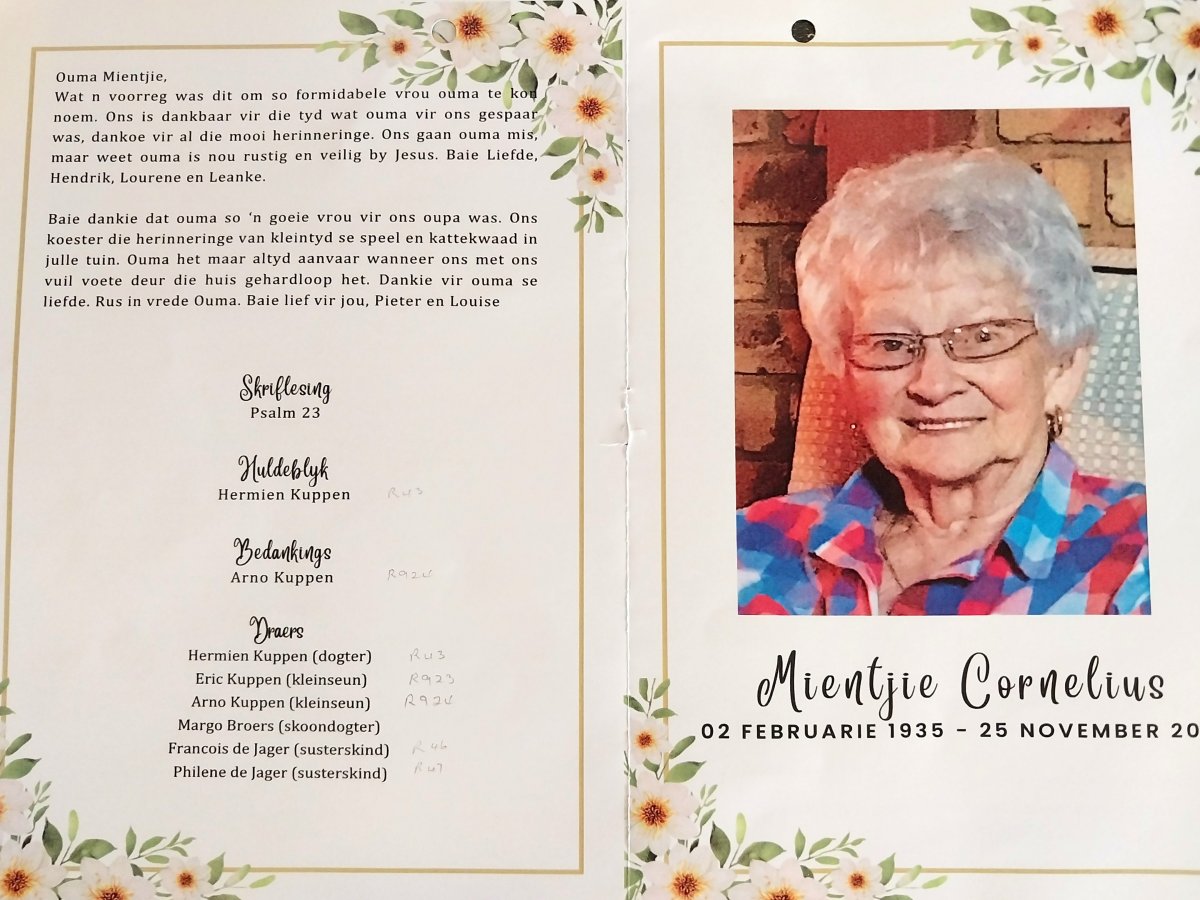 Ouma Mientjie,
Wat n voorreg was dit om so formidabele vrou ouma te kon
noem. Ons is dankbaar vir die tyd wat ouma vir ons gespaar
was, dankoe vir al die mooi herinneringe. Ons gaan ouma mis,
maar weet ouma is nou rustig en veilig by Jesus. Baie Liefde,
Hendrik, Lourene en Leanke.
Baie dankie dat ouma so ‘n goeie vrou vir ons oupa was. Ons
koester die herinneringe van kleintyd se speel en kattekwaad in
julle tuin. Ouma het maar altyd aanvaar wanneer ons met ons
vuil voete deur die huis gehardloop het. Dankie vir ouma se
liefde. Rus in vrede Ouma. Baie lief vir jou, Pieter en Louise
Skriflesing
Psalm 23
Huldeblyk
Hermien Kuppen R43
Bedankings
Arno Kuppen R924
Draers
Hermien Kuppen (dogter) R43
Eric Kuppen (kleinseun) R923
Arno Kuppen (kleinseun) R924
Margo Broers (skoondogter)
Francois de Jager (susterskind) R46
Philene de Jager (susterskind) R47
Mientjie Cornelius
02 FEBRUARIE 1935 - 25 NOVEMBER 20